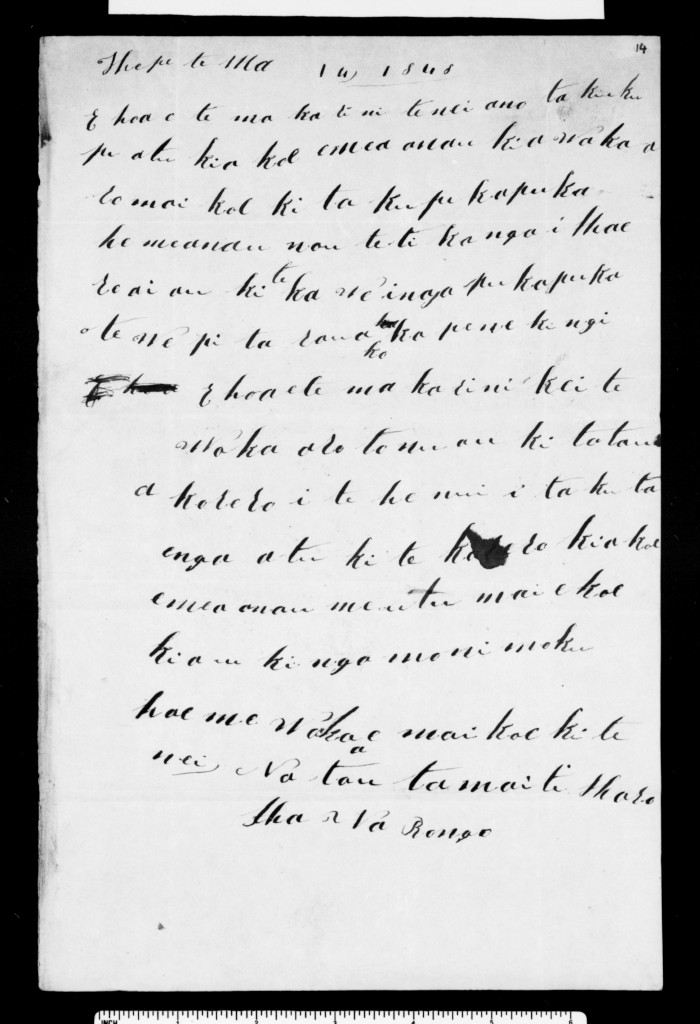 14
Hhepe te Ma 14 1848
E hoa e te ma ka ti ni tenei ano ta ku ku
pu atu kia koe emea anau kia waka a
ro mai koe ki ta ku pu kapuka
he meanau nou te te kanga i Hae
re ai au ki te ka we inga pukapuka
o te we pi ta raua ko ka pene kingi
E hoa ete ma ka ri ni kei te
waka aro tonu au ki tatau
a korero i te he nui i ta ku ta
enga atu ki te korero kia koe
emea anau me utu mai e koe
kia au ki nga moni moku
hoe me waka e mai koe ki te
a
nei Na tou tamaiti Haro
Ha wa Rongo
INCH 1 2 3 4 5 6